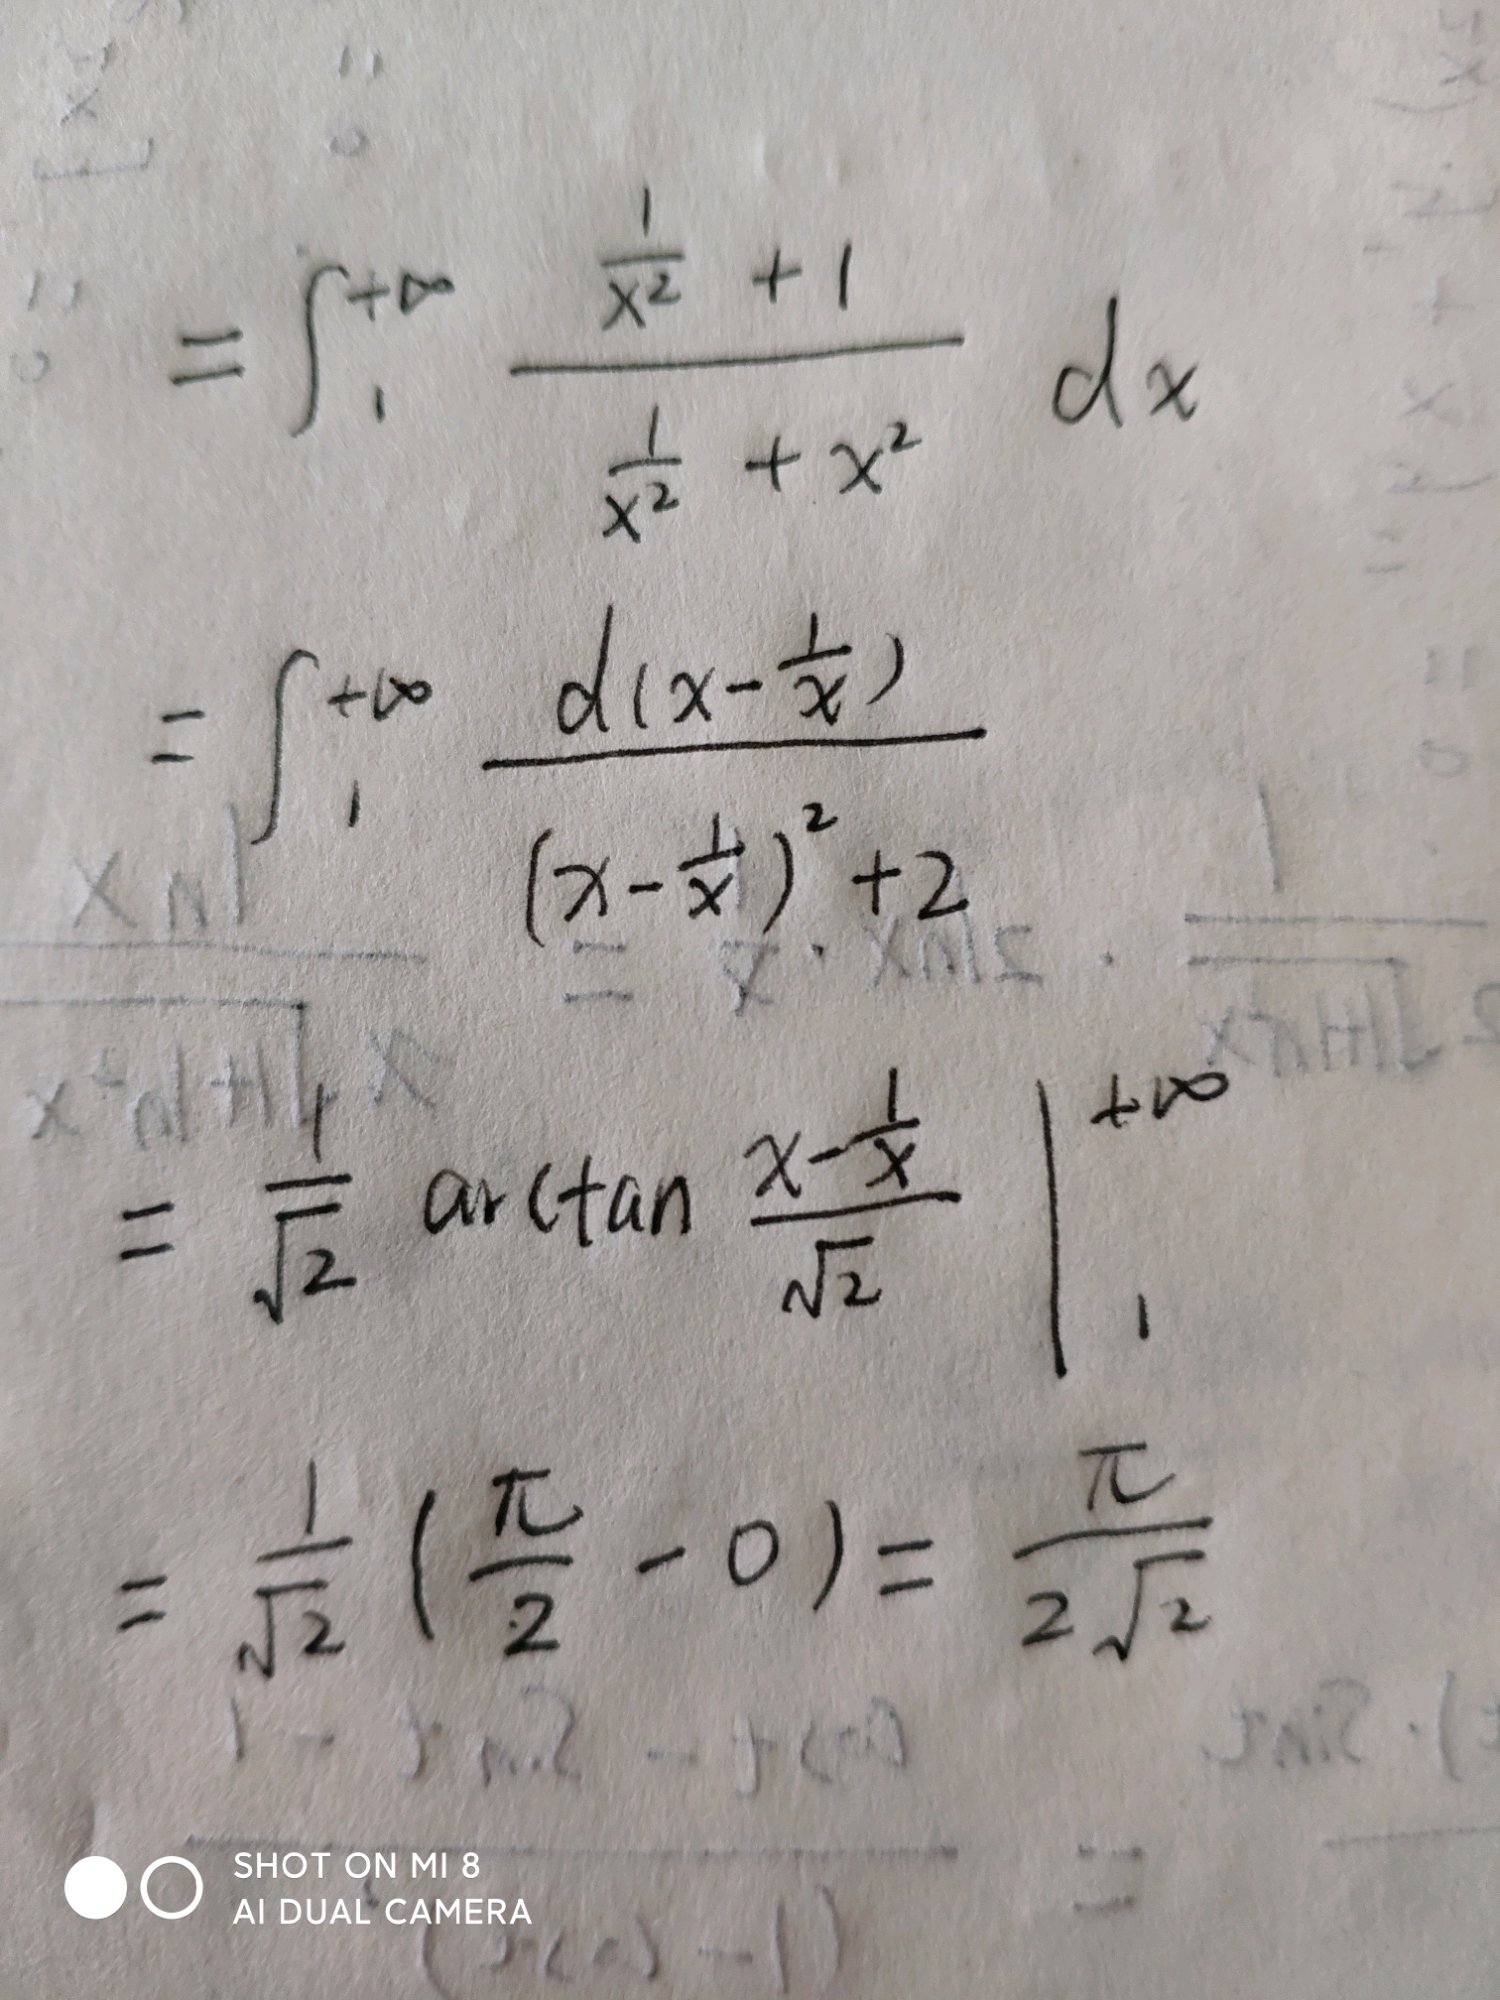 = ∫₁^{+∞} (1/x² + 1)/(1/x² + x²) dx
= ∫₁^{+∞} d(x - 1/x)/((x - 1/x)² + 2)
= 1/√2 arctan (x - 1/x)/√2 |₁^{+∞}
= 1/√2 (π/2 - 0) = π/(2√2)
SHOT ON MI 8
AI DUAL CAMERA